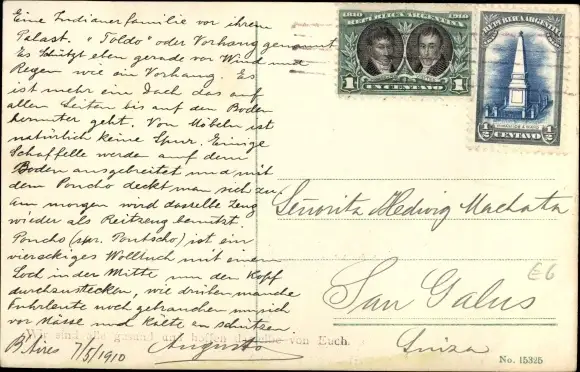 Eine Indianerfamilie vor ihrem
Palast. "Toldo" oder Vorhang genannt
Es schützt eben gerade vor Wind und
Regen wie ein Vorhang. Es
ist mehr ein Dach das auf
allen Seiten bis auf den Boden
herunter geht. Von Möbeln ist
natürlich keine Spur. Einige
Schaffelle werden auf dem
Boden ausgebreitet und mit
dem Poncho deckt man sich zu
Am morgen wird dasselbe Zeug
wieder als Reitzeug benutzt.
Poncho (spr. Pontscho) ist ein
viereckiges Wolltuch mit einem
Loch in der Mitte um den Kopf
durchzustecken, wie drüben manche
Fuhrleute noch gebrauchen um sich
vor Nässe und Kälte zu schützen.
Wir sind alle gesund und hoffen dasselbe von Euch.
B'Aires 7/5/1910 Augusto
1810 1910
REPUBLICA ARGENTINA
1 UN CENTAVO 1
REPUBLICA ARGENTINA
1/2 CENTAVO 1/2
Señorita Hedwig Machata
San Galus
Suiza
€6
No. 15325